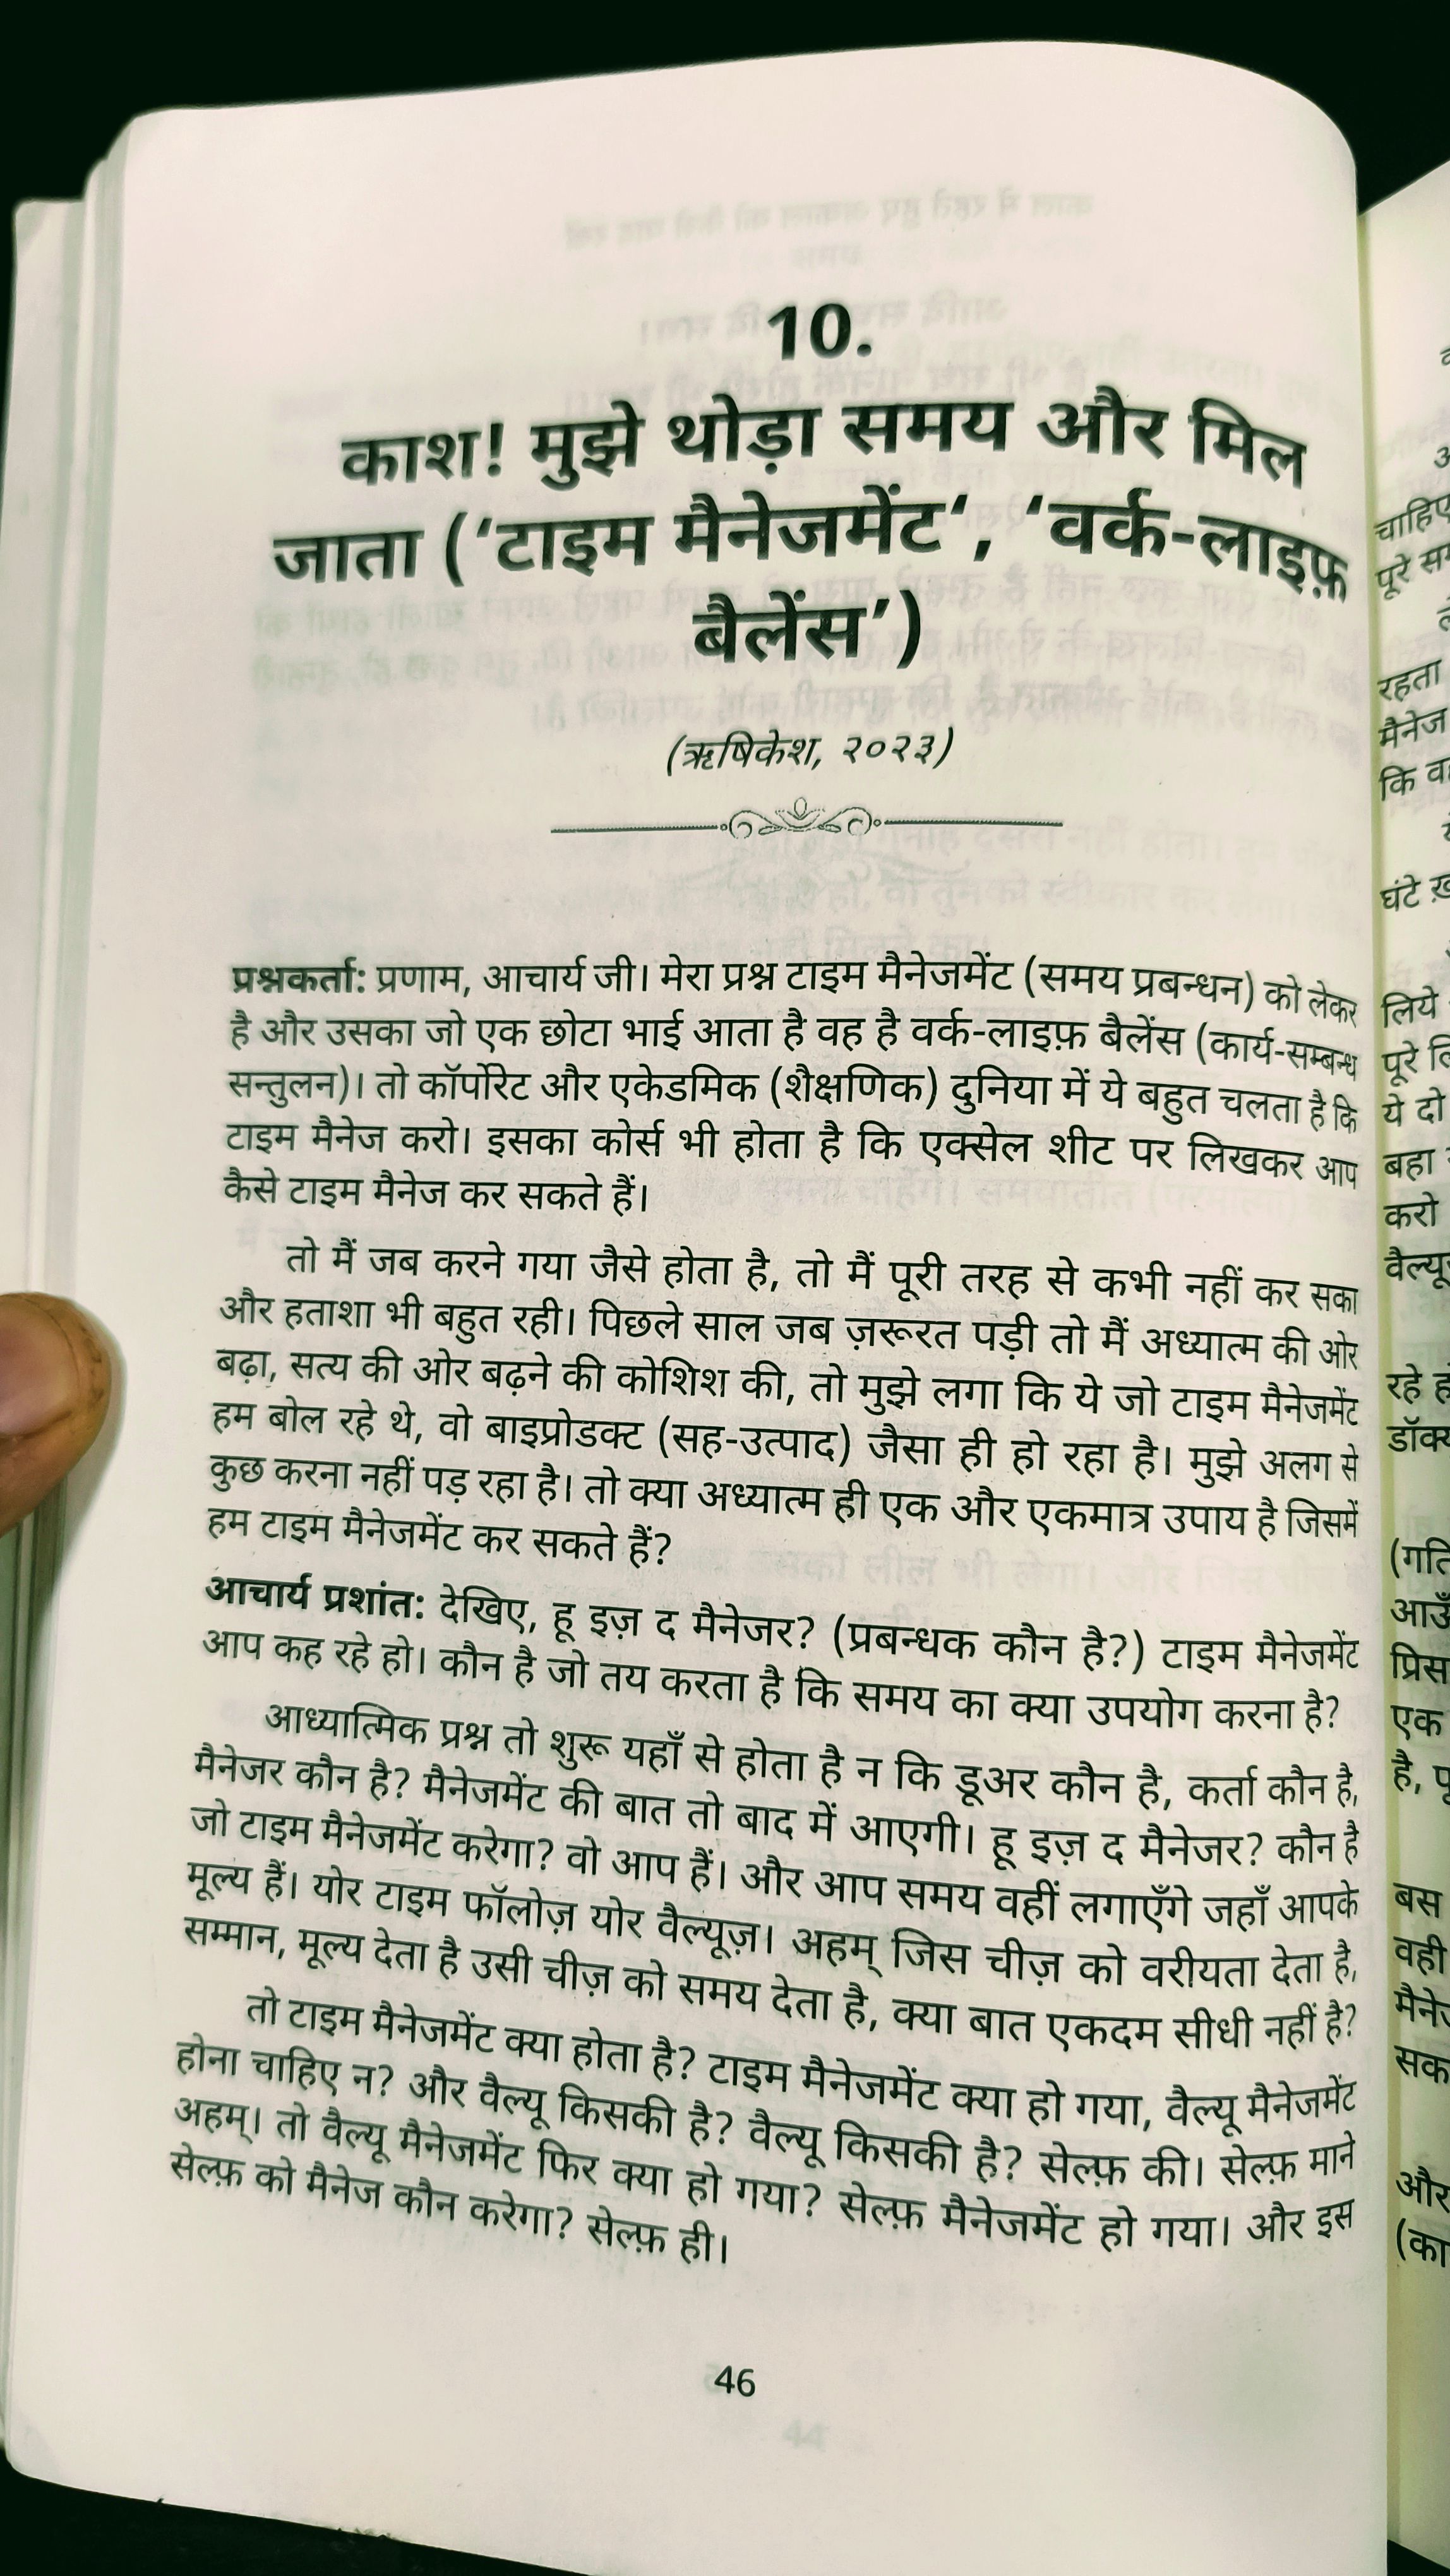 10.
काश! मुझे थोड़ा समय और मिल
जाता (‘टाइम मैनेजमेंट‘, ‘वर्क-लाइफ़
बैलेंस’)
(ऋषिकेश, २०२३)
प्रश्नकर्ता: प्रणाम, आचार्य जी। मेरा प्रश्न टाइम मैनेजमेंट (समय प्रबन्धन) को लेकर
है और उसका जो एक छोटा भाई आता है वह है वर्क-लाइफ़ बैलेंस (कार्य-सम्बन्ध
सन्तुलन)। तो कॉर्पोरेट और एकेडमिक (शैक्षणिक) दुनिया में ये बहुत चलता है कि
टाइम मैनेज करो। इसका कोर्स भी होता है कि एक्सेल शीट पर लिखकर आप
कैसे टाइम मैनेज कर सकते हैं।
तो मैं जब करने गया जैसे होता है, तो मैं पूरी तरह से कभी नहीं कर सका
और हताशा भी बहुत रही। पिछले साल जब ज़रूरत पड़ी तो मैं अध्यात्म की ओर
बढ़ा, सत्य की ओर बढ़ने की कोशिश की, तो मुझे लगा कि ये जो टाइम मैनेजमेंट
हम बोल रहे थे, वो बाइप्रोडक्ट (सह-उत्पाद) जैसा ही हो रहा है। मुझे अलग से
कुछ करना नहीं पड़ रहा है। तो क्या अध्यात्म ही एक और एकमात्र उपाय है जिसमें
हम टाइम मैनेजमेंट कर सकते हैं?
आचार्य प्रशांत: देखिए, हू इज़ द मैनेजर? (प्रबन्धक कौन है?) टाइम मैनेजमेंट
आप कह रहे हो। कौन है जो तय करता है कि समय का क्या उपयोग करना है?
आध्यात्मिक प्रश्न तो शुरू यहाँ से होता है न कि डूअर कौन है, कर्ता कौन है,
मैनेजर कौन है? मैनेजमेंट की बात तो बाद में आएगी। हू इज़ द मैनेजर? कौन है
जो टाइम मैनेजमेंट करेगा? वो आप हैं। और आप समय वहीं लगाएँगे जहाँ आपके
मूल्य हैं। योर टाइम फॉलोज़ योर वैल्यूज़। अहम् जिस चीज़ को वरीयता देता है,
सम्मान, मूल्य देता है उसी चीज़ को समय देता है, क्या बात एकदम सीधी नहीं है?
तो टाइम मैनेजमेंट क्या होता है? टाइम मैनेजमेंट क्या हो गया, वैल्यू मैनेजमेंट
होना चाहिए न? और वैल्यू किसकी है? वैल्यू किसकी है? सेल्फ़ की। सेल्फ़ माने
अहम्। तो वैल्यू मैनेजमेंट फिर क्या हो गया? सेल्फ़ मैनेजमेंट हो गया। और इस
सेल्फ़ को मैनेज कौन करेगा? सेल्फ़ ही।
46